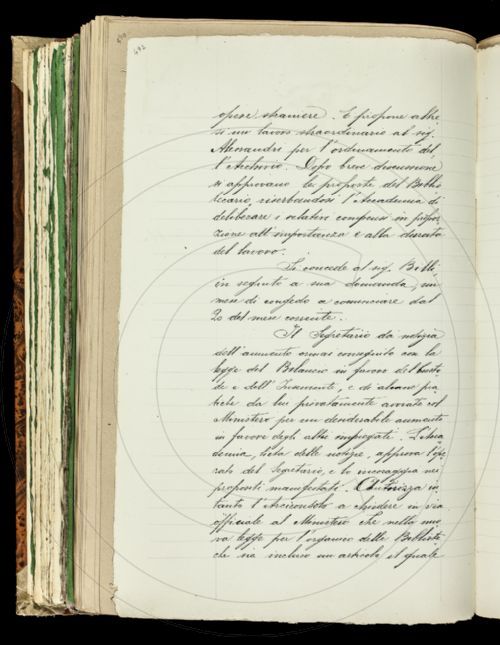 492
opere straniere. E propone altre
sì un lavoro straordinario al sig.
Alessandri per l'ordinamento del
l'Archivio. Dopo breve discussione
si approvano le proposte del Biblio
tecario, riserbandosi l'Accademia di
deliberare i relativi compensi in propor
zione all'importanza e alla durata
del lavoro.
Si concede al sig. Belli,
in seguito a sua domanda, un
mese di congedo a cominciare dal
20 del mese corrente.
Il Segretario dà notizia
dell'aumento ormai conseguito con la
legge del Bilancio in favore del Custo
de e dell'Inserviente, e di alcune pra
tiche da lui privatamente avviate col
Ministero per un desiderabile aumento
in favore degli altri impiegati. L'Acca
demia, lieta delle notizie, approva l'ope
rato del Segretario, e lo incoraggia nei
propositi manifestati. Autorizza in
tanto l'Arciconsolo a chiedere in via
officiale al Ministero che nella nuo
va legge per l'organico delle Bibliote
che sia incluso un articolo il quale